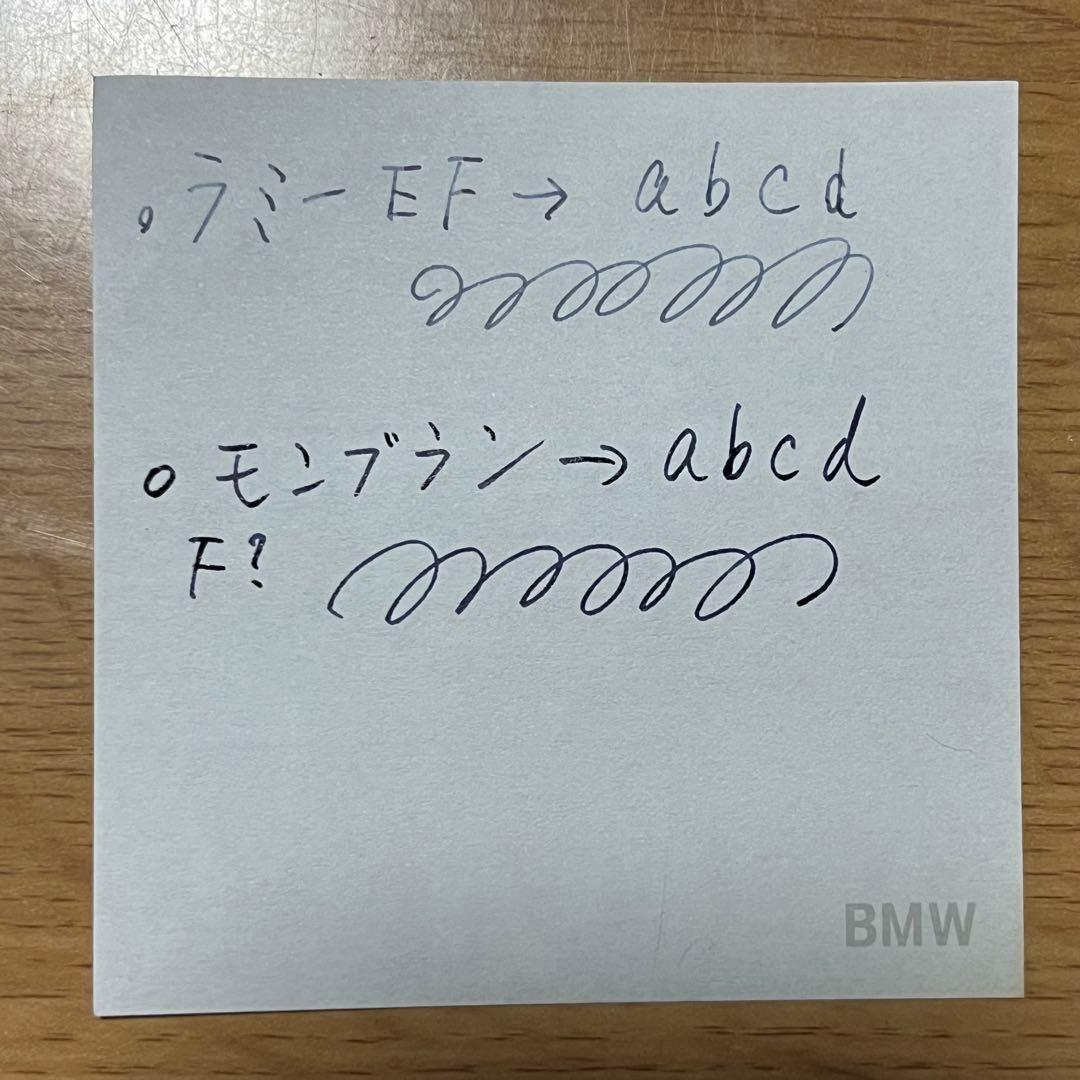 。ラミー EF → abcd
。モンブラン → abcd
F?
BMW